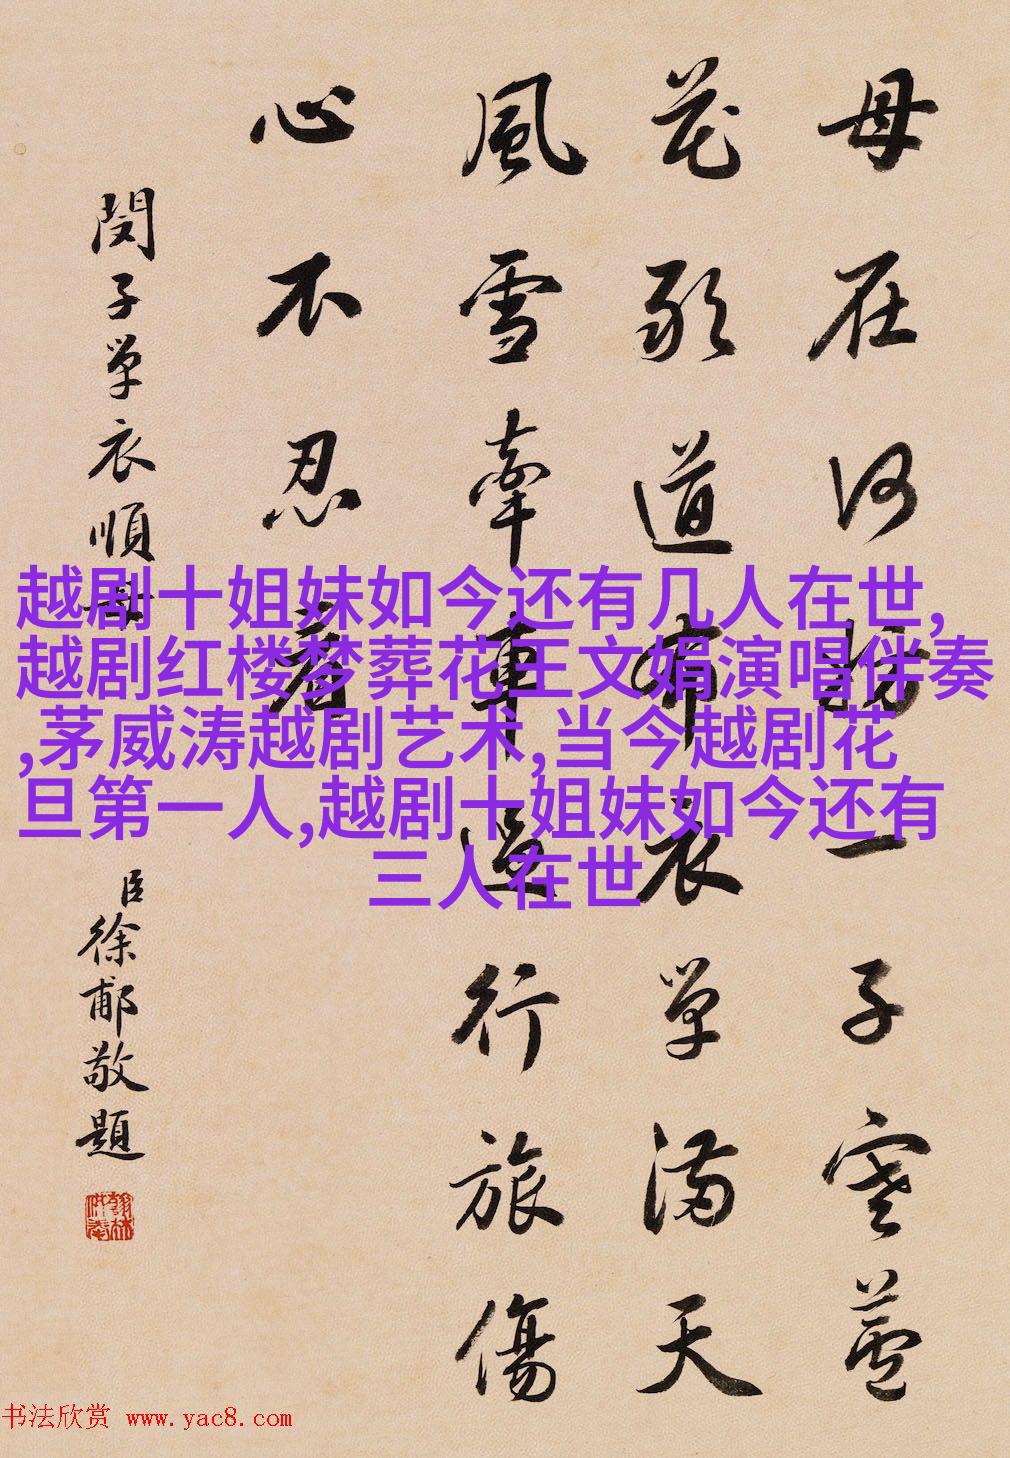 母在何妨一子寒蘆
花敢道布衣單滿天
風雪牽車過行旅傷
心不忍看
閔子單衣順母
臣徐郙敬題
翰林供奉
越剧十姐妹如今还有几人在世,
越剧红楼梦葬花王文娟演唱伴奏
,茅威涛越剧艺术,当今越剧花
旦第一人,越剧十姐妹如今还有
三人在世
书法欣赏 www.yac8.com